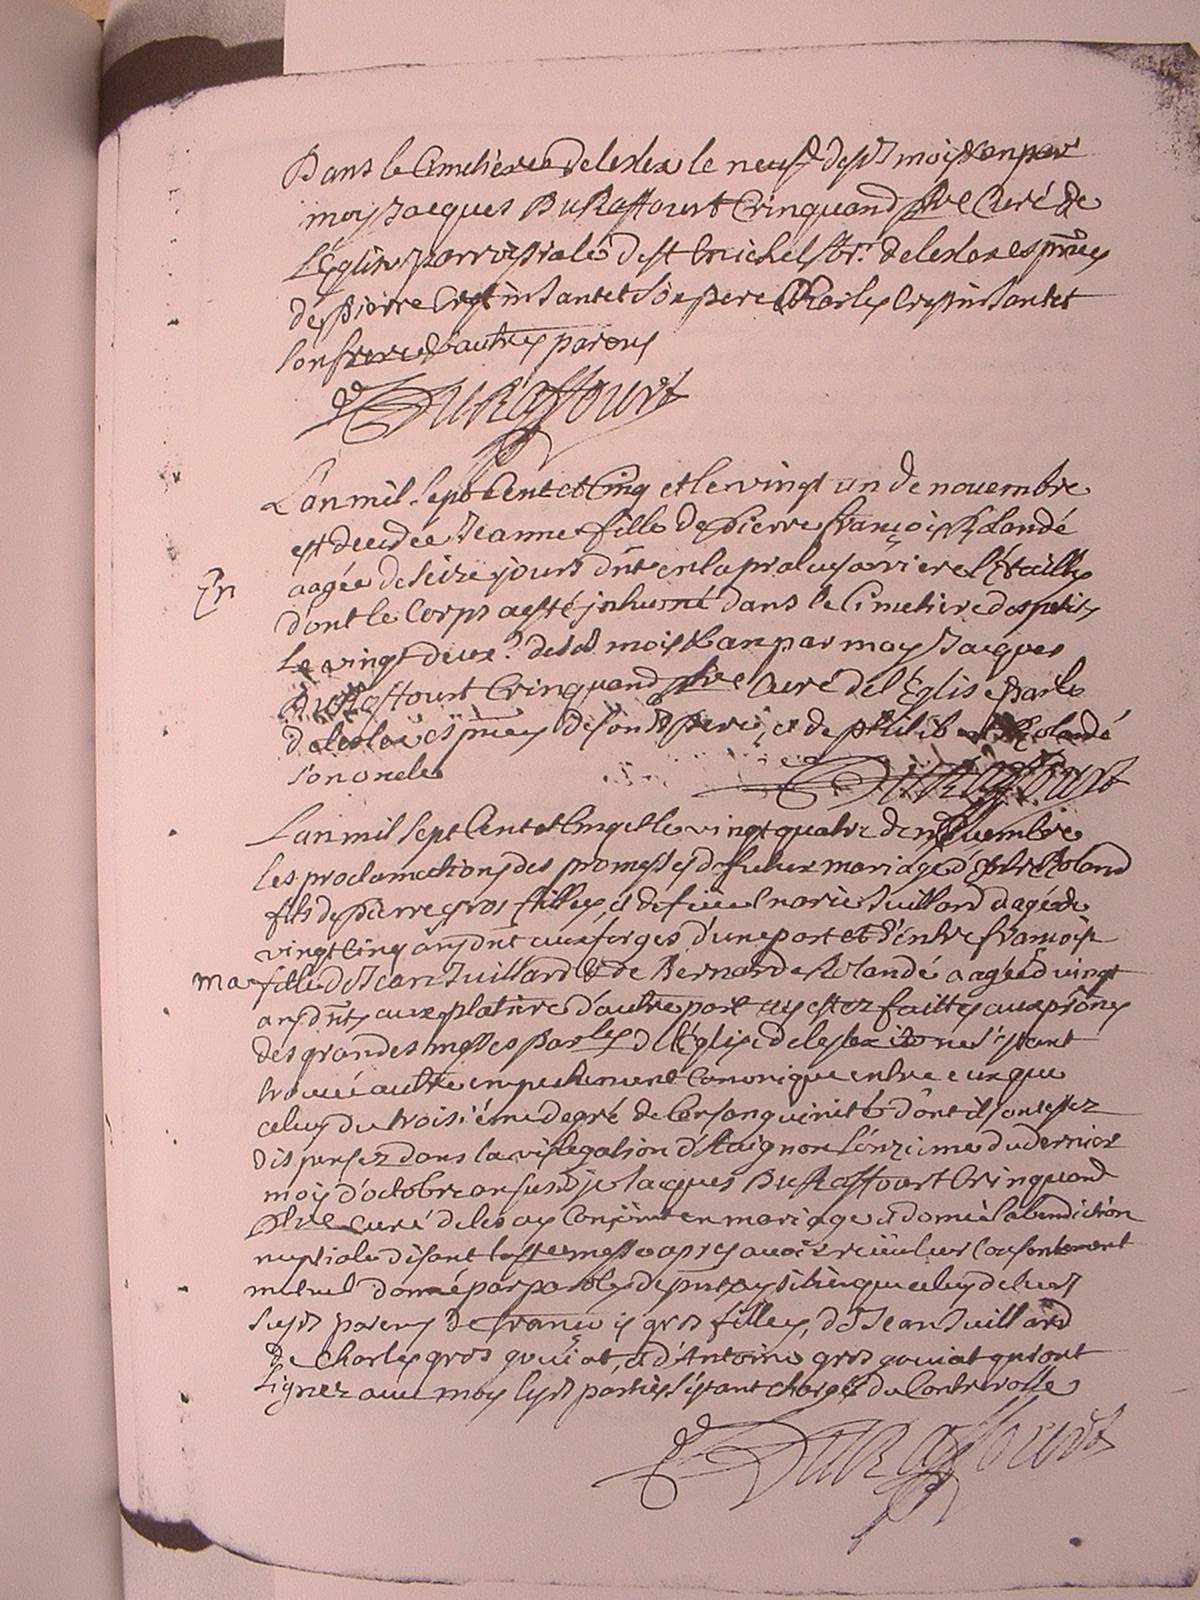 Dans le Cimetiere de lelex le neuf desd. mois & an par
moy Jacques DuRaffourt Crinquand pbre Curé de
l'Eglise parroissiale de st michel de lelex es pnces
de pierre son pere Charles
son frere & autres parens
DuRaffourt
L'an mil sept Cent et Cinq et le vingt un de novembre
est decedée Jeanne fille de pierre françois Rolandé
En
aagée de seize jours dnt en la
dont le Corps a esté inhumé dans le Cimetiere des petits
Le vingt deux e desd. mois & an par moy Jacques
DuRaffourt Crinquand pbre Curé de l'Eglise parle
de lelex es pnces de sond. pere, et de philibert Rolandé
son oncle
DuRaffourt
L'an mil sept Cent et Cinq et le vingt quatre de novembre
Les proclamations des promesses du futur mariage d'Entre Roland
fils de pierre gros fillex, et de feue marie Juillard aagé de
vingt Cinq ans dnt aux forges d'une part et d'entre françoise
ma
fille de Jean Juillard & de Bernarde Rolandé aagée de vingt
ans dnts aux platiere d'autre part ayt estez faittes aux prônes
des grandes messes parles de l'Eglise de lelex ne s'estant
trouvé autre empechement Canonique entre eux que
celuy du troisiéme degré de Consanguinité dont ils ont estez
dispensez dans la vislegation d'Avignon l'onzieme du dernier
mois d'octobre an susd. je Jacques DuRaffourt Crinquand
pbre Curé de lelex ay Conjoint en mariage et donné la benediction
nuptiale disant la ste messe apres avoir reçeu leur Consentement
mutuel donné par paroles de pnt
susds parens de françois gros fillex, de Jean Juillard
de Charles gros gouiat, et d'Antoine gros gouiat qui ont
signez avec moy lesd. parties s'estant chargé du Controlle
DuRaffourt